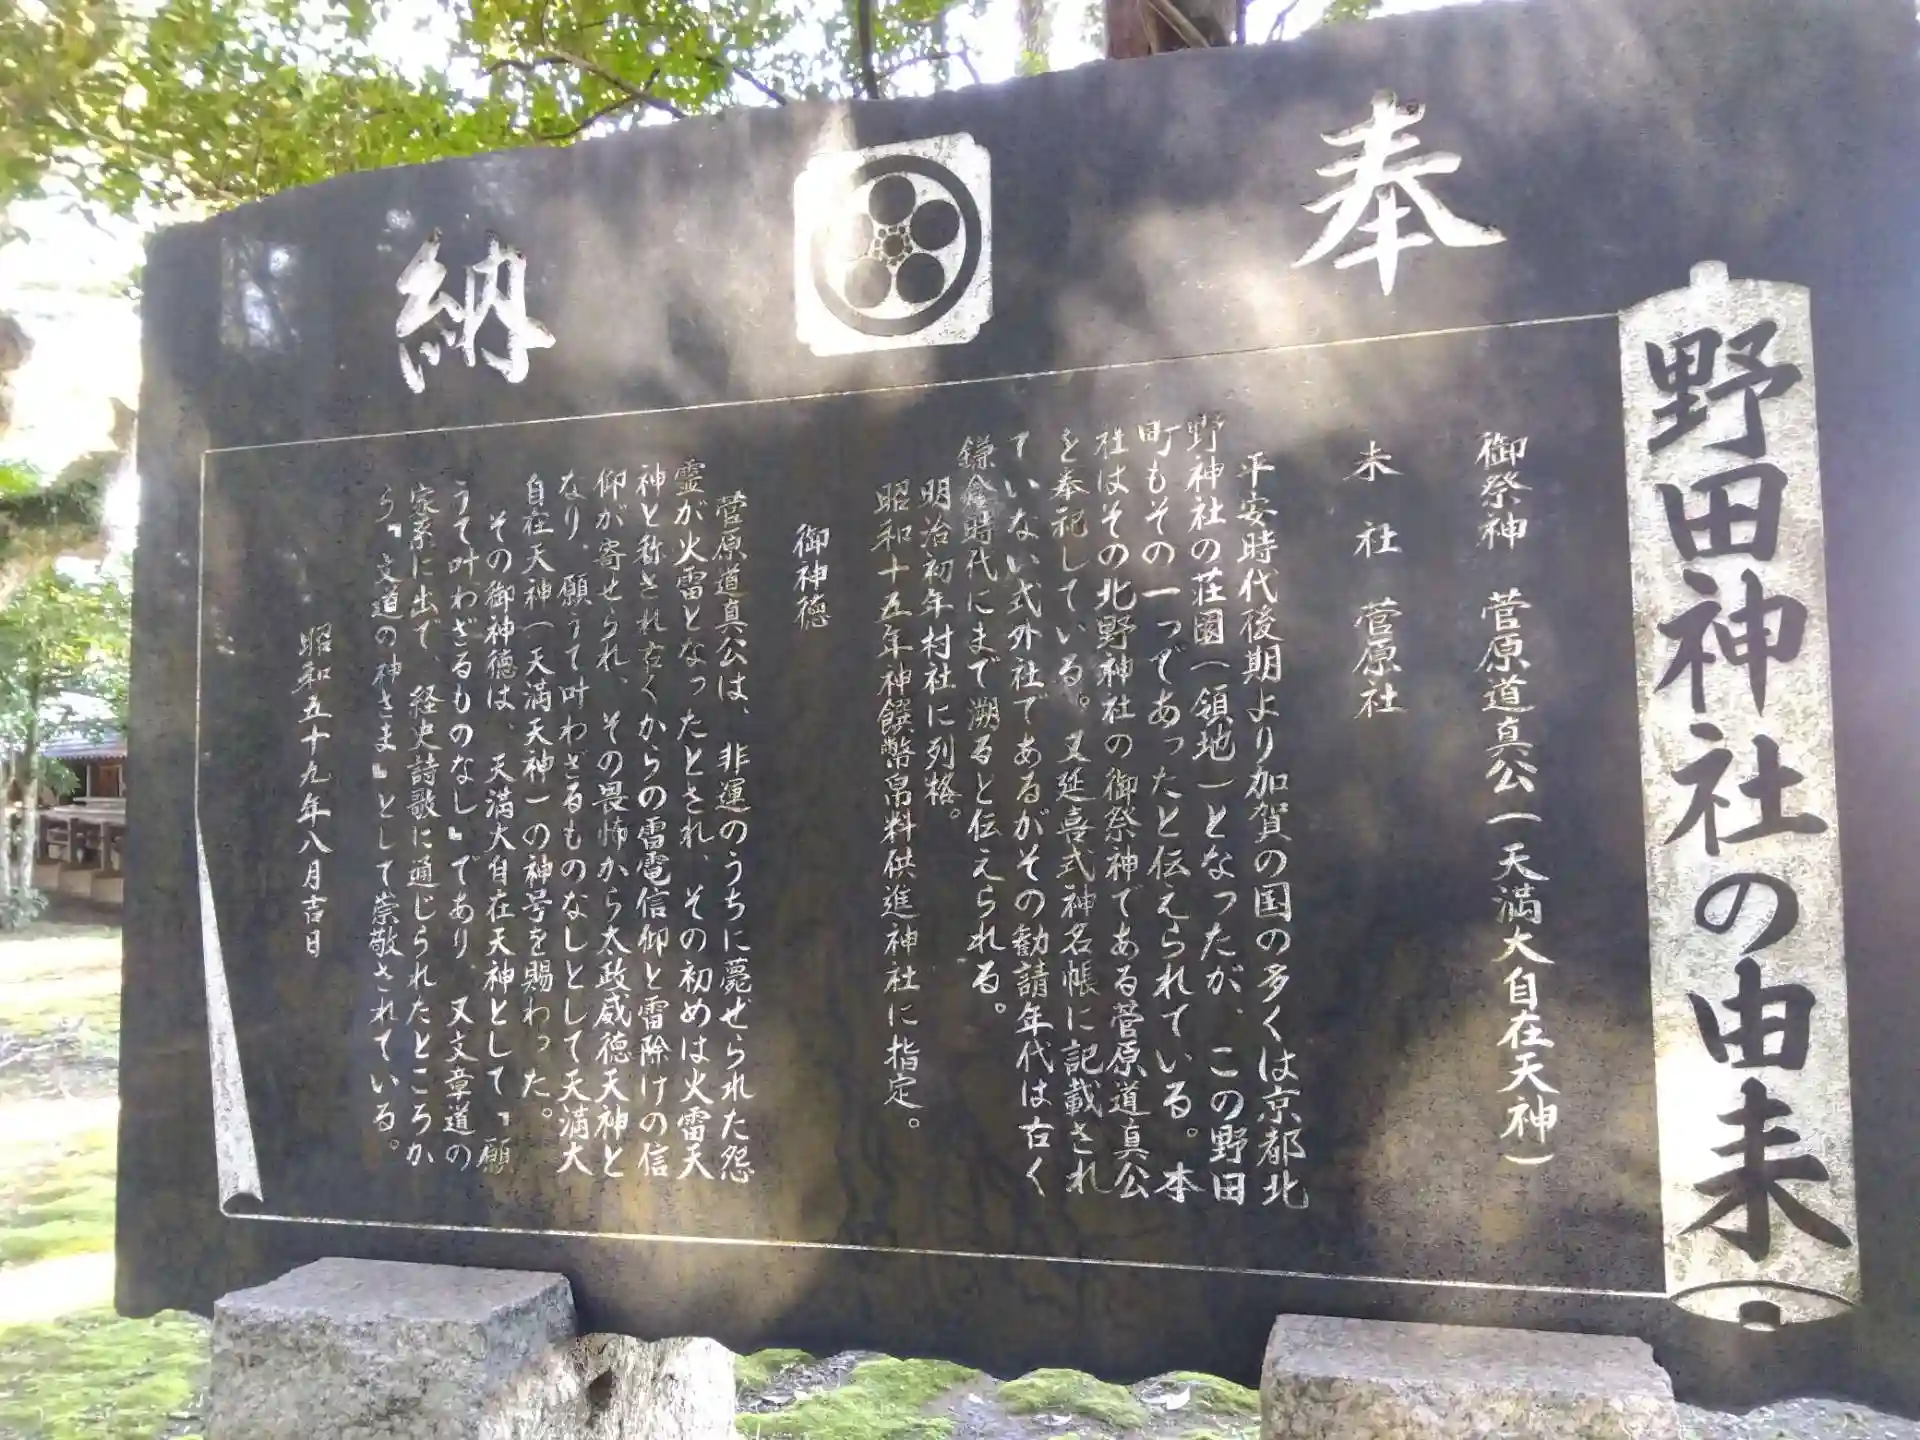 奉納
野田神社の由来
御祭神 菅原道真公(天満大自在天神)
末社 菅原社
平安時代後期より加賀の国の多くは京都北
野神社の荘園(領地)となったが、この野田
町もその一つであったと伝えられている。本
社はその北野神社の御祭神である菅原道真公
を奉祀している。又延喜式神名帳に記載され
ていない式外社であるがその勧請年代は古く
鎌倉時代にまで溯ると伝えられる。
明治初年村社に列格。
昭和十五年神饌幣帛料供進神社に指定。
御神徳
菅原道真公は、非運のうちに薨ぜられた怨
霊が火雷となったとされ、その初めは火雷天
神と称され古くからの雷電信仰と雷除けの信
仰が寄せられ、その畏怖から太政威徳天神と
なり、願うて叶わざるものなしとして天満大
自在天神(天満天神)の神号を賜わった。
その御神徳は、天満大自在天神として『願
うて叶わざるものなし』であり、又文章道の
家系に出で、経史詩歌に通じられたところか
ら『文道の神さま』として崇敬されている。
昭和五十九年八月吉日